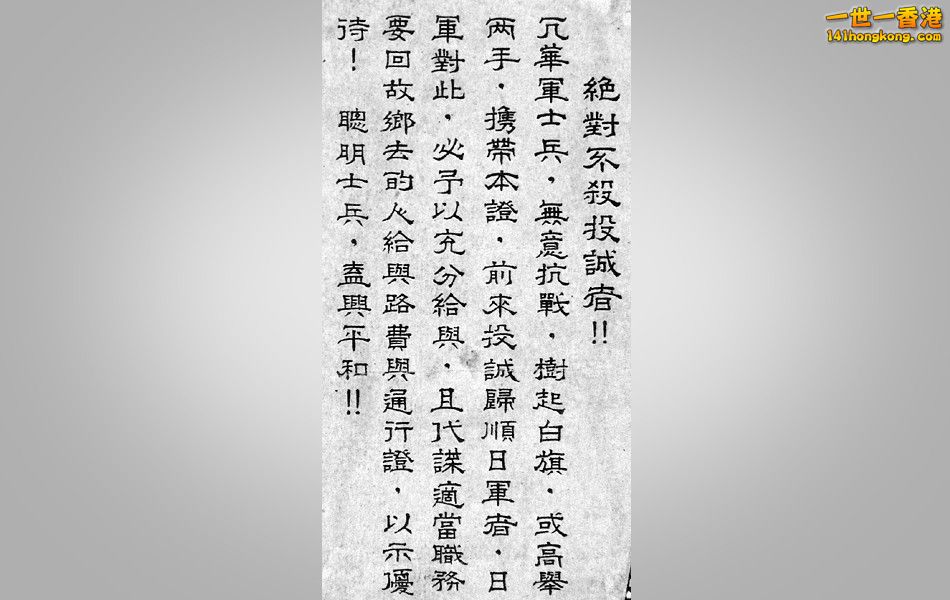 絶對不殺投誠者!!
凡華軍士兵，無意抗戰，樹起白旗，或高舉
两手，携帶本證，前來投誠歸順日軍者，日
軍對此，必予以充分給與，且代謀適當職務
要回故鄉去的人給與路費與通行證，以示優
待！　聰明士兵，盍興平和!!
一世一香港
141hongkong.com